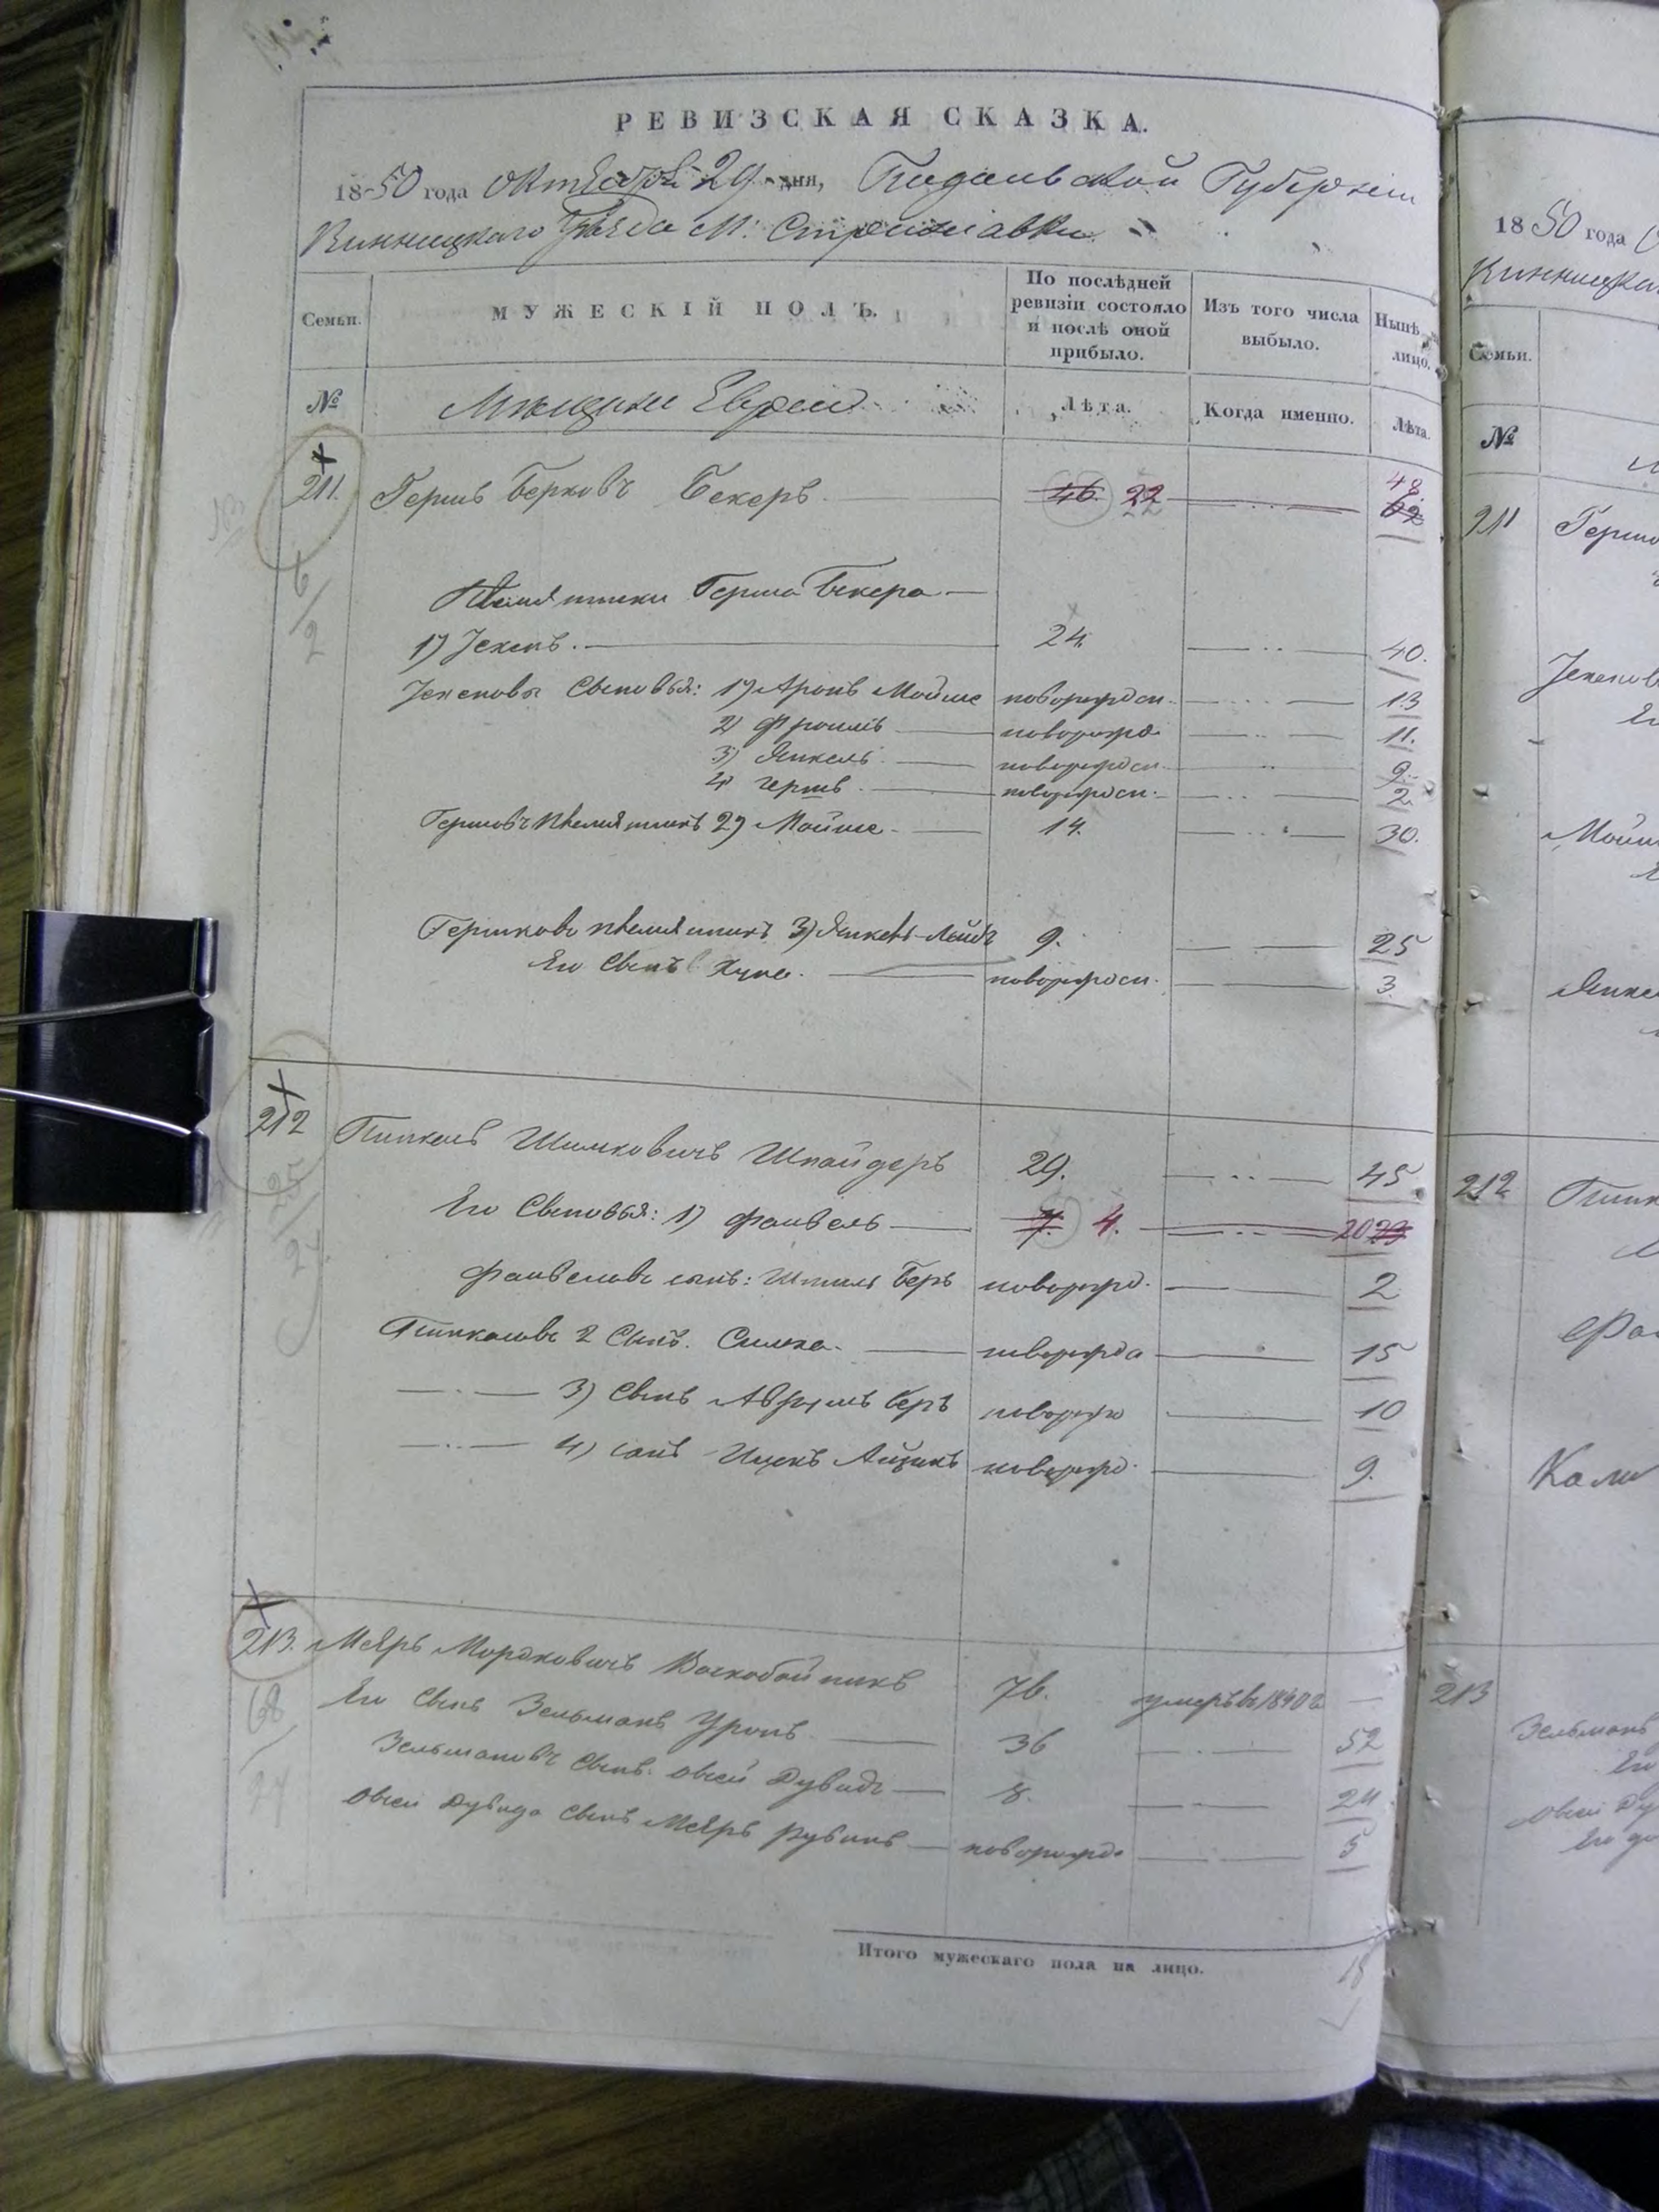 РЕВИЗСКАЯ СКАЗКА.
1850 года октября 29 дня, Подольской Губернии
Винницкаго Уѣзда М: Стрижавки
Семьи. МУЖЕСКІЙ ПОЛЪ. По послѣдней ревизіи состояло и послѣ оной прибыло. Изъ того числа выбыло. Нынѣ на лицо.
№ Мѣщане Евреи Лѣта. Когда именно. Лѣта.
211. Гершъ Берковъ Бекеръ 46. 22 48. 62
6/2
Племянники Герша Бекера
1) Хехелъ. 24. 40.
Сыновья: 1) Аронъ Мойше новорожден. 13
2) Фроимъ новорожд. 11.
3) Янкель новорожден. 9.
4) Гершъ новорожден. 2.
Гершовъ племянникъ 2) Мойше 14. 30.
Гершковъ племянникъ 3) Янкель-Лейбъ 9. 25
Его Сынъ новорожден. 3.
212 Пинкасъ Шимковичъ Шнайдеръ 29. 45.
Его Сыновья: 1) Файвель 7. 4. 20 23
Файвеловъ сынъ: Шмиль Беръ новорожд. 2
Пинкасовъ 2 Сынъ. Симха новорожд 15
3) Сынъ Аврумъ Беръ новорож 10
4) сынъ Ицекъ Айзикъ новорожд. 9.
213. Меяръ Мордковичъ Воскобойникъ 76. умеръ въ 1840 г.
Его Сынъ Зельманъ Уронъ 36 52
Зельмановъ Сынъ. Овсей Дувидъ 8. 24
Овсей Дувида Сынъ Меяръ Рувинъ новорожд. 5
68/24
Итого мужескаго пола на лицо. 18
1850 года
Винницка
Семьи.
№
211 Герш
Его
Мойш
Янке
212 Пинк
Фа
213
Зельманъ
Его
Овсей Ду
Его до